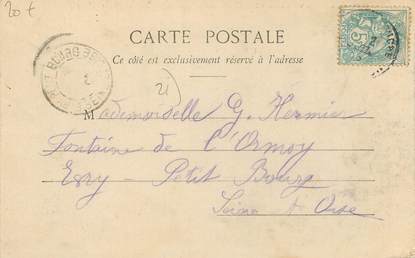 20 €
CARTE POSTALE
Ce côté est exclusivement réservé à l'adresse
21
Mademoiselle G. Hermier
Fontaine de l'Ormoy
Evry - Petit Bourg
Seine & Oise